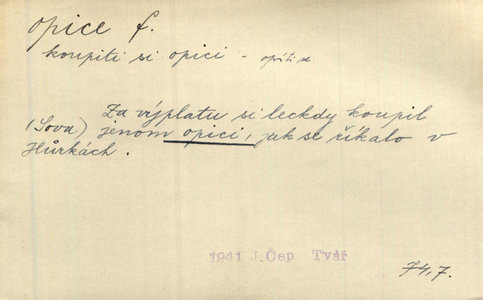 opice f.
koupiti si opici - opíti se
Za výplatu si leckdy koupil
(Sova) jenom opici, jak se říkalo v
Hůrkách.
1941 J.Čep Tvář
74,7.